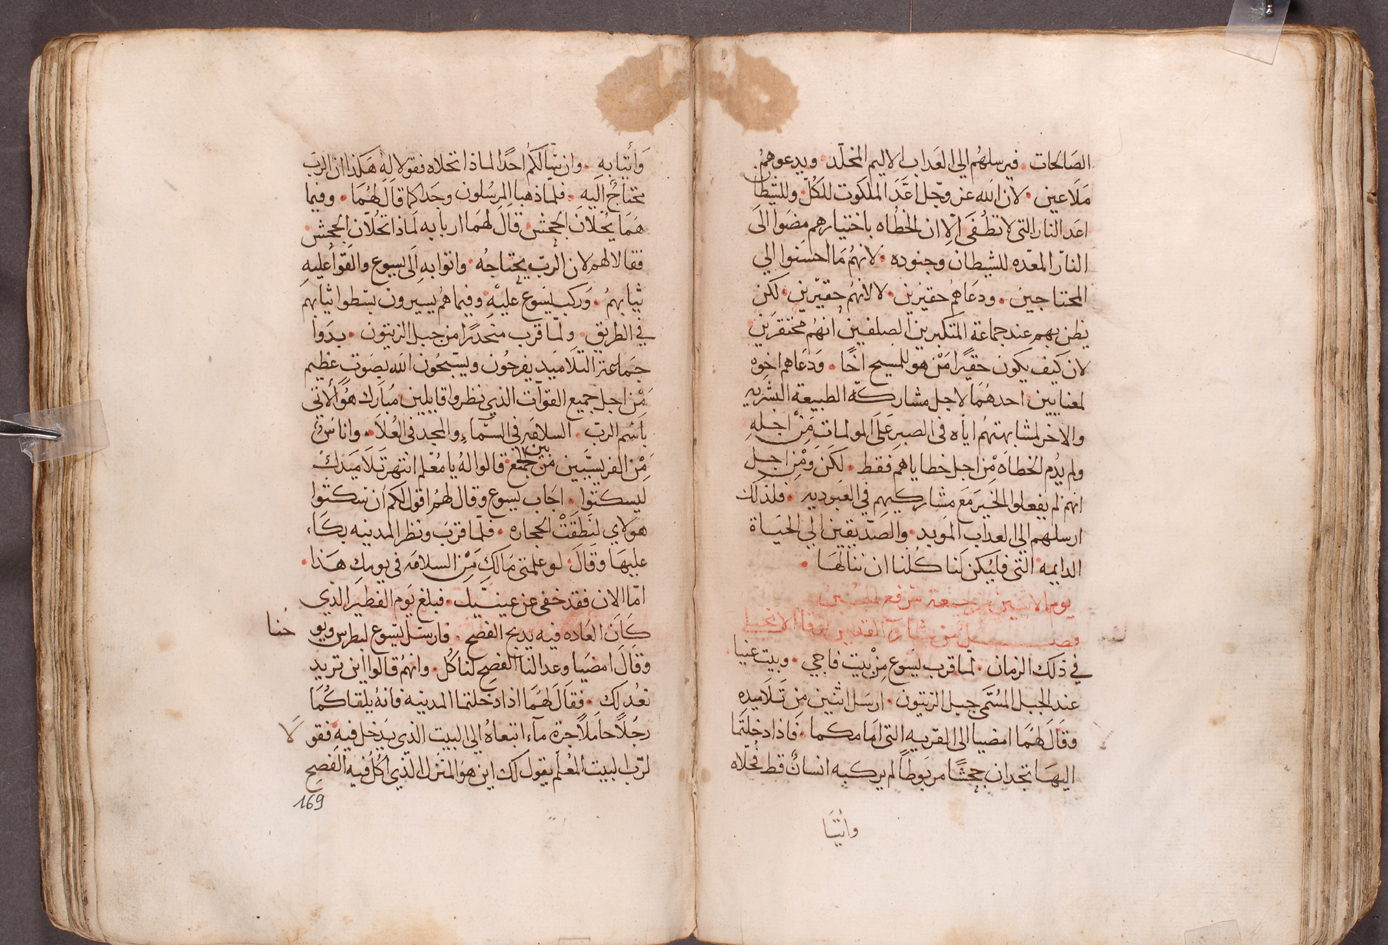 الصالحات • فيرسلهم الي العذاب الاليم المخلد • ويدعوهم
ملاعين • لان الله عز وجل اعد الملكوت للكل • وللشيطان
اعد النار التي لا تطفي • الا ان الخطاه باختيارهم مضوا الي
النار المعده للشيطان وجنوده • لانهم ما احسنوا الي
المحتاجين • ودعاهم حقيرين • لا لانهم حقيرين • لكن
يظن بهم عند جماعة المتكبرين الصلفين انهم محتقرين
لان كيف يكون حقيرا من هو للمسيح اخا • ودعاهم اخوه
لمعنايين • احدهما لاجل مشاركة الطبيعة البشريه
والاخر لمشابهتهم اياه في الصبر على المولمات من اجله
ولم يذم الخطاه من اجل خطاياهم فقط • لكن ومن اجل
انهم لم يفعلوا الخير مع مشاركيهم في العبوديه • فلذلك
ارسلهم الى العذاب الموبد • والصديقين الي الحياة
الدايمه • التي فليكن لنا كلنا ان ننالها •
يوم الاثنين من جمعة مرفع الجبن
فصل من بشارة القديس لوقا الانجيلي
في ذلك الزمان • لما قرب يسوع من بيت فاجي • وبيت عنيا
عند الجبل المسمى جبل الزيتون • ارسل اثنين من تلاميذه
وقال لهما امضيا الى القريه التي امامكما • فاذا دخلتما
اليها تجدان جحشا مربوطا لم يركبه انسان قط فحلاه
وأتيا
وأتيا به • وان سألكم احدا لماذا تحلاه فقولا له هكذا ان الرب
يحتاج اليه • فلما ذهبا المرسلون وجدا كما قال لهما • وفيما
هما يحلان الجحش • قال لهما اربابه لماذا تحلان الجحش •
فقالا لهم لان الرب يحتاجه • واتوا به الى يسوع والقوا عليه
ثيابهم • وركب يسوع عليه • وفيما هم يسيرون بسطوا ثيابهم
في الطريق • ولما قرب منحدرا من جبل الزيتون • بدوا
جماعة التلاميذ يفرحون ويسبحون الله بصوت عظيم
من اجل جميع القوات الذي نظروا قايلين • مبارك هو الاتى
باسم الرب • السلامه في السماء والمجد في العلا • واناس
من الفريسيين من بين الجمع • قالوا له يا معلم انتهر تلاميذك
ليسكتوا • اجاب يسوع وقال لهم اقول لكم ان سكتوا
هولاي لنطقت الحجاره • فلما قرب ونظر المدينه بكاء
عليها وقال • لو علمتى مالك من السلامه في يومك هذا •
اما الان فقد خفي عن عينيك • فبلغ يوم الفطير الذي
كان العاده فيه يذبح الفصح • فارسل يسوع بطرس ويو
حنا
وقال امضيا وعدا لنا الفصح لناكل • وانهم قالوا اين تريد
نعد لك • فقال لهما اذا دخلتما المدينه فانه يلقاكما
رجلا حاملا جرة ماء اتبعاه الي البيت الذي يدخل فيه • فقو
لا
لرب البيت المعلم يقول لك اين هو المنزل الذي اكل فيه الفصح
169